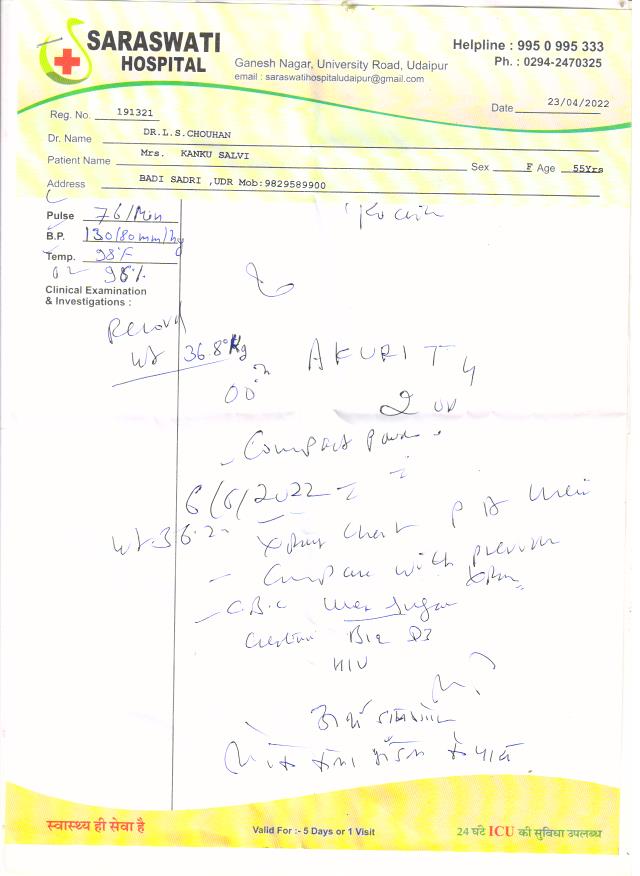 SARASWATI
HOSPITAL
Ganesh Nagar, University Road, Udaipur
email : saraswatihospitaludaipur@gmail.com
Helpline : 995 0 995 333
Ph. : 0294-2470325
Reg. No. 191321
Date 23/04/2022
Dr. Name DR.L.S.CHOUHAN
Patient Name Mrs. KANKU SALVI Sex F Age 55Yrs
Address BADI SADRI ,UDR Mob:9829589900
Pulse 76/Min
B.P. 130/80mm/hg
Temp. 98°F
98%
Clinical Examination
& Investigations :
Wt 36.8 Kg
AKURIT 4
2
6/6/2022
Wt. 36.2
Xray Chest P A View
Compare with previous
Xray
C.B.C Urea Sugar
B12 D3
HIV
स्वास्थ्य ही सेवा है
Valid For :- 5 Days or 1 Visit
24 घंटे ICU की सुविधा उपलब्ध